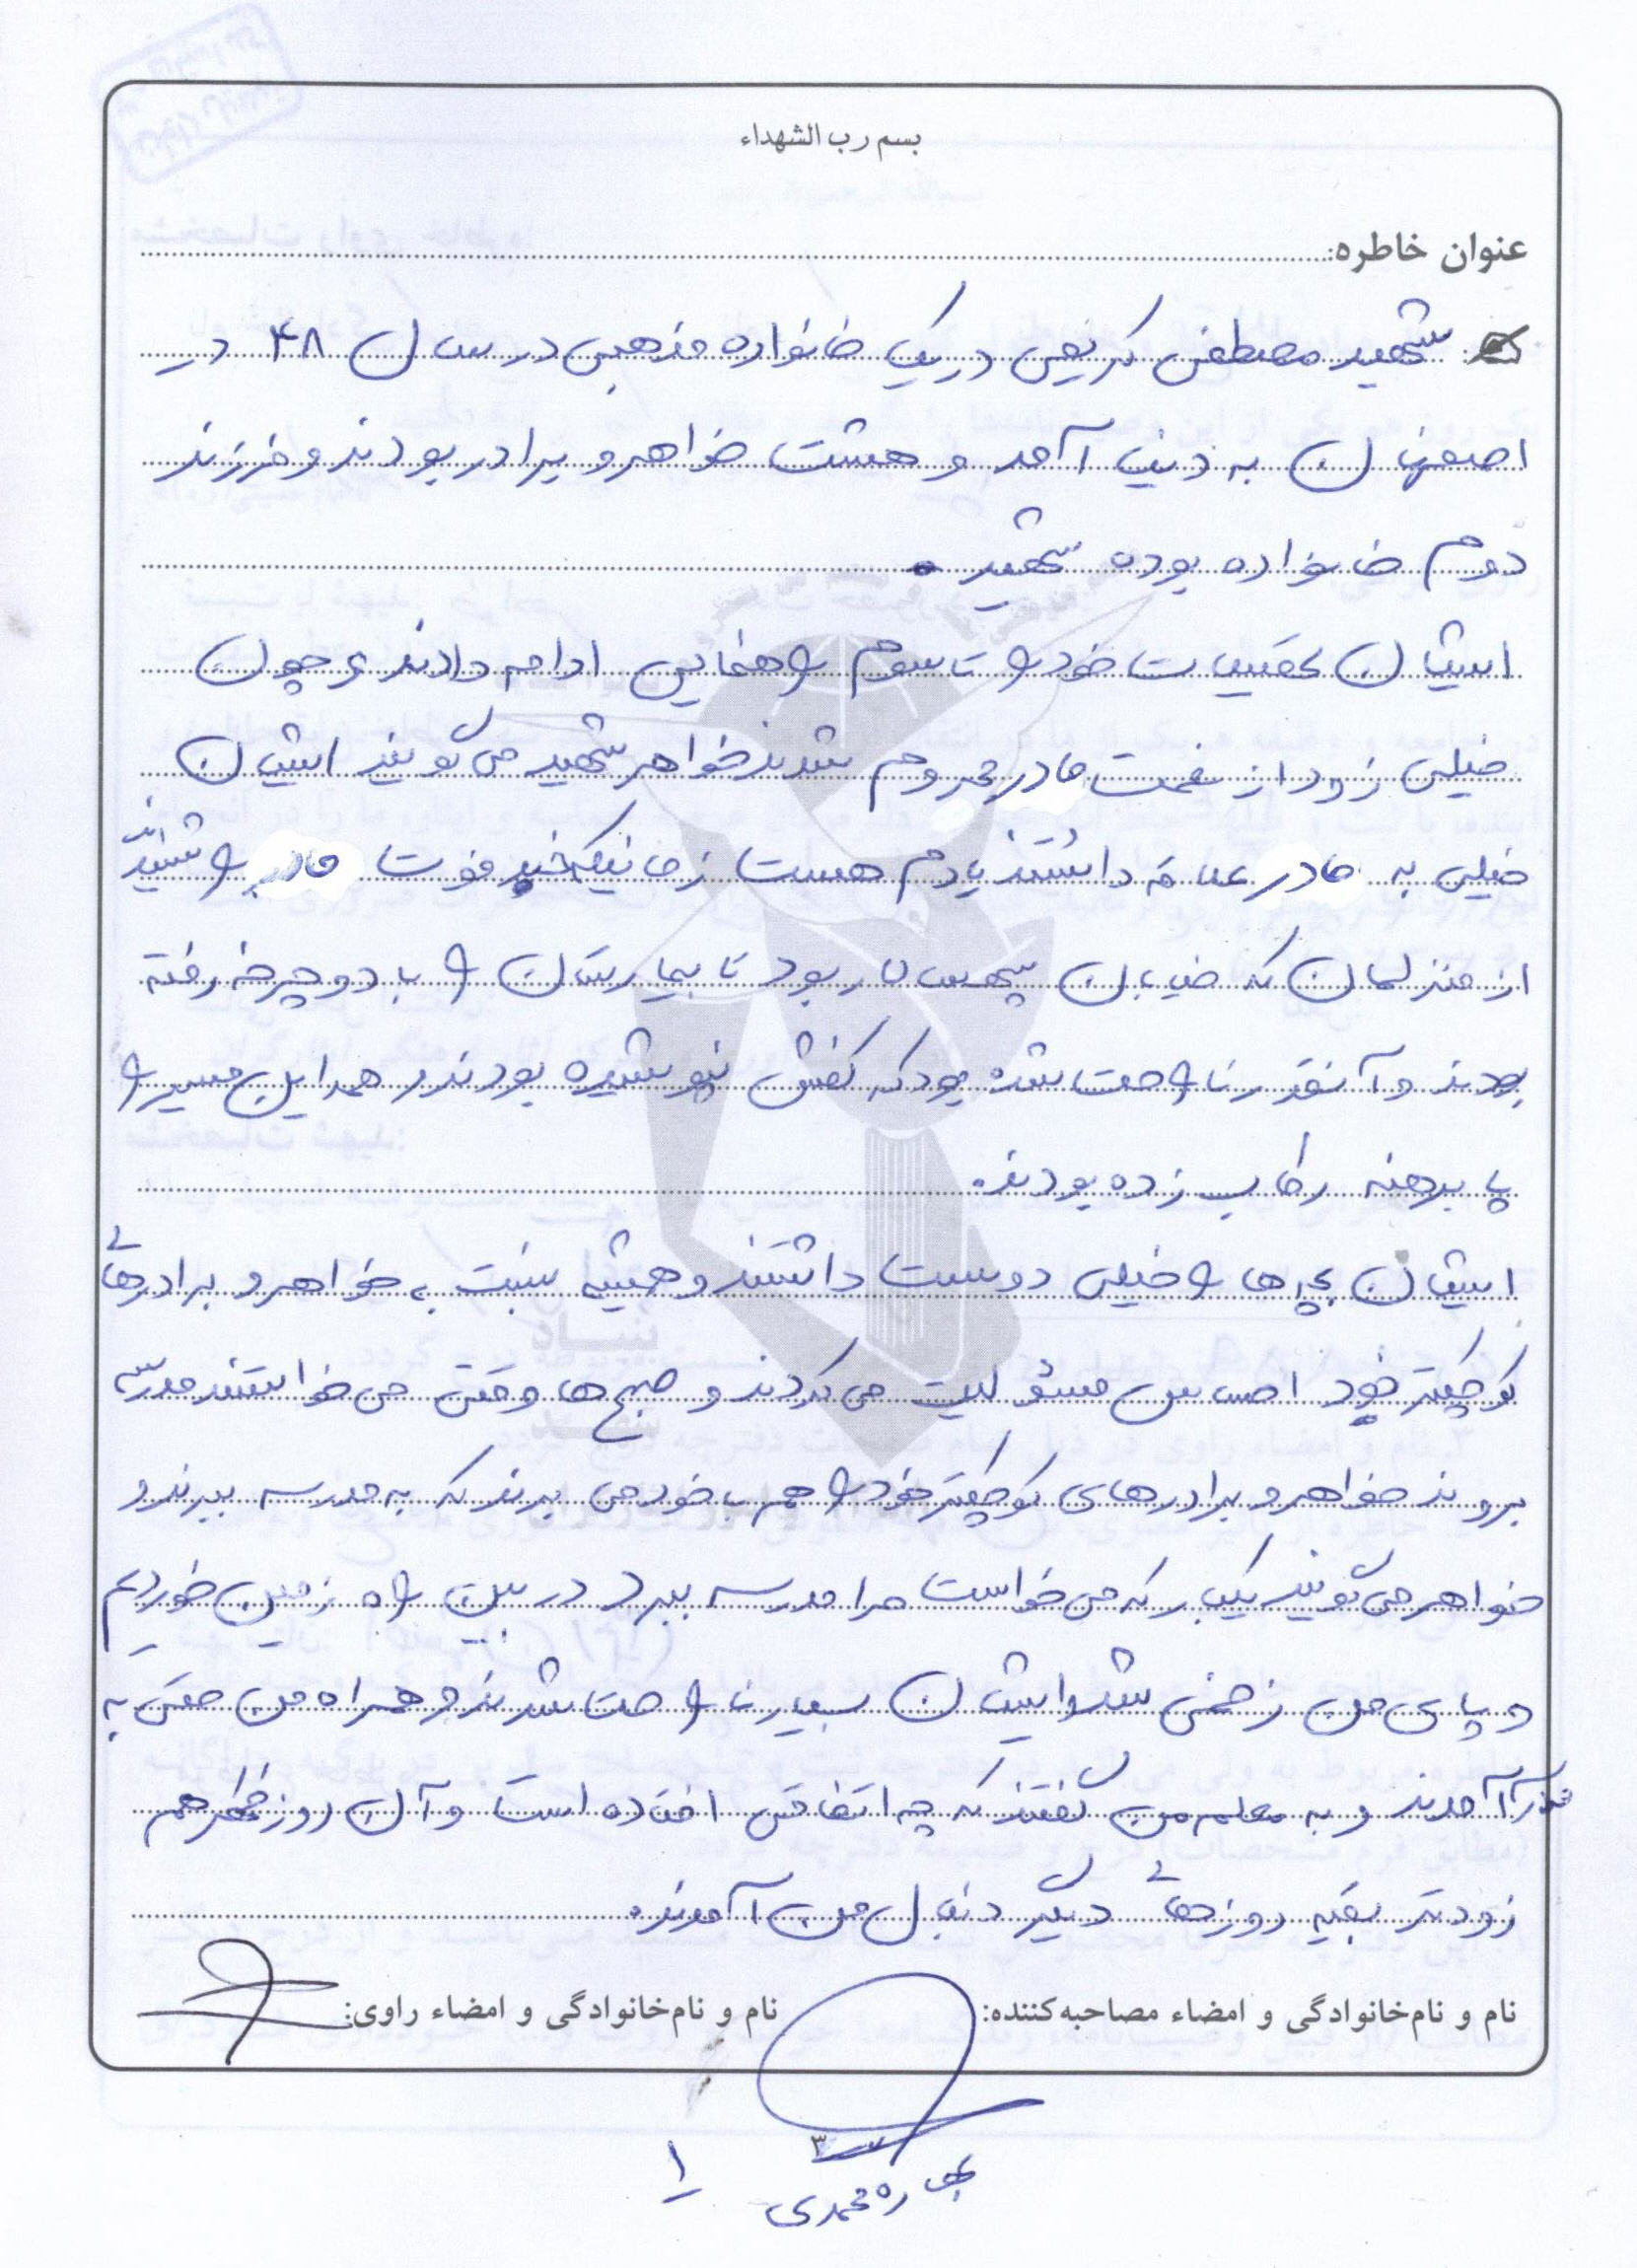 بسم رب الشهداء
عنوان خاطره:
شهید مصطفی کریمی در یک خانواده مذهبی در سال ۴۸ در
اصفهان به دنیا آمد و هشت خواهر و برادر بودند و فرزند
دوم خانواده بوده شهید.
ایشان تحصیلات خود را تا سوم راهنمایی ادامه دادند و چون
خیلی زود از نعمت مادر محروم شدند خواهر شهید می گویند ایشان
خیلی به مادر علاقه داشتند یادم هست زمانیکه خبر فوت مادر را شنیدند
از منزلمان که خیابان بود تا بیمارستان را با دوچرخه رفته
بودند و آنقدر ناراحت شده بود که کفش نپوشیده بودند و همه این مسیر را
پا برهنه رکاب زده بودند.
ایشان بچه ها را خیلی دوست داشتند و همیشه نسبت به خواهر و برادرهای
کوچکتر خود احساس مسئولیت می کردند و صبح ها وقتی می خواستند مدرسه
بروند خواهر و برادرهای کوچکتر خود را هم با خود می بردند که به مدرسه ببرند و
خواهر می گویند یکبار که می خواست مرا مدرسه ببرد در بین راه زمین خوردیم
و پای من زخمی شد و ایشان بسیار ناراحت شدند و همراه من حتی به
آمدند و به معلم من گفتند که چه اتفاقی افتاده است و آن روز ظهر هم
زودتر بقیه روزهای دیگر دنبال من آمدند.
نام و نام‌خانوادگی و امضاء مصاحبه‌کننده:
نام و نام‌خانوادگی و امضاء راوی:
۳
بهاره محمدی
۱